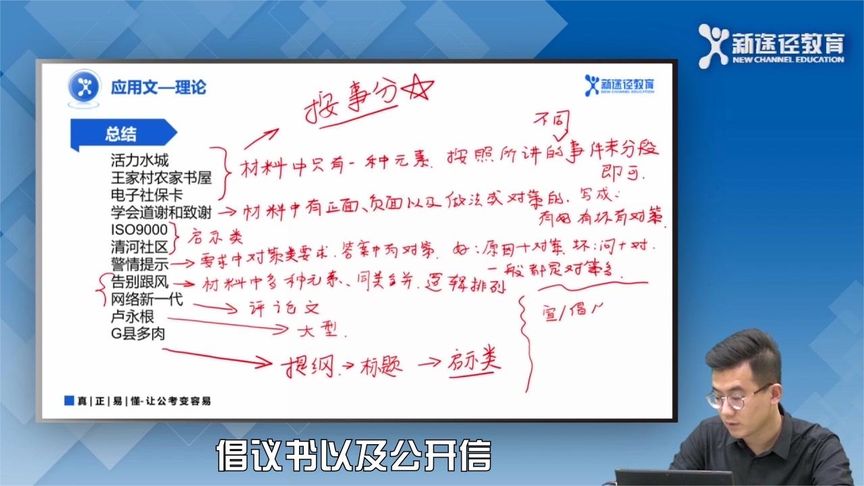 新途径教育
NEW CHANNEL EDUCATION
应用文—理论
新途径教育
NEW CHANNEL EDUCATION
按事分☆
总结
不同
活力水城
王家村农家书屋
电子社保卡
材料中只有一种元素.按照所讲的事件来分段
即可.
学会道谢和致谢
材料中有正面、负面以及做法或对策的.写成:
有好有坏有对策.
ISO9000
清河社区
启示类
警情提示
要求中对策类要求.答案中有对策.好:原因+对策.坏:问+对.
一般都是对策多.
告别跟风
材料中多种元素、同类合并.逻辑排列
网络新一代
评论文
宣/倡/
卢永根
大型.
G县多肉
提纲→标题→启示类
真|正|易|懂-让公考变容易
倡议书以及公开信